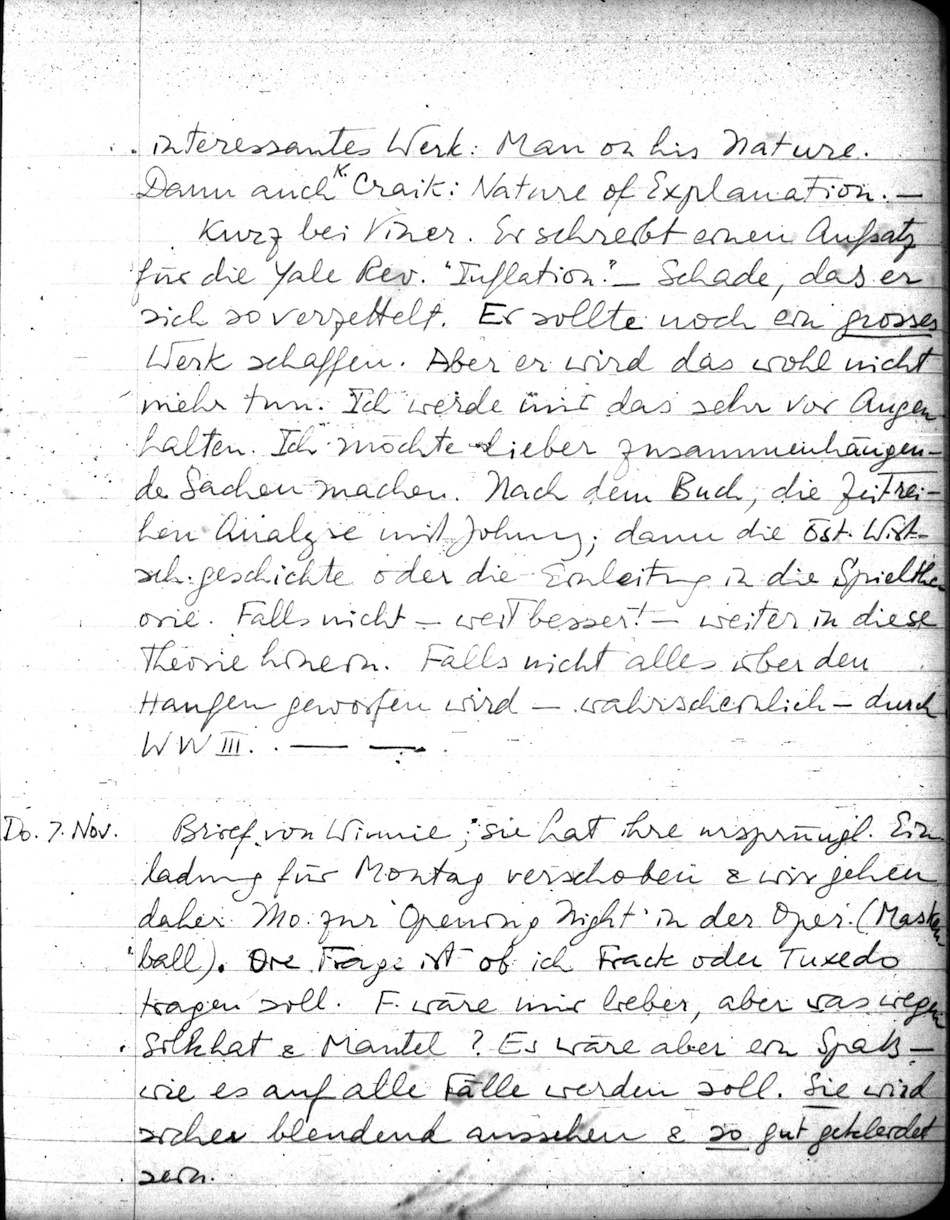 interessantes Werk: Man on his Nature.
Dann auch K. Craik: Nature of Explanation. —
Kurz bei Viner. Er schreibt einen Aufsatz
für die Yale Rev. "Inflation". — Schade, das er
sich so verzettelt. Er sollte noch ein grosses
Werk schaffen. Aber er wird das wohl nicht
mehr tun. Ich werde mir das sehr vor Augen
halten. Ich möchte lieber zusammenhängen-
de Sachen machen. Nach dem Buch, die Zeitrei-
hen Analyse mit Johnny; dann die öst. Wirt-
sch. geschichte oder die Einleitung in die Spielthe
orie. Falls nicht — weit besser! — weiter in diese
Theorie hinein. Falls nicht alles über den
Haufen geworfen wird — wahrscheinlich — durch
WW III. — —
Do. 7. Nov. Brief von Winnie; sie hat ihre ursprüngl. Ein
ladung für Montag verschoben & wir gehen
daher Mo. zur 'Opening Night' in der Oper. (Masken
ball). Die Frage ist ob ich Frack oder Tuxedo
tragen soll. F. wäre mir lieber, aber was wegen
Silkhat & Mantel? Es wäre aber ein Spaß —
wie es auf alle Fälle werden soll. Sie wird
sicher blendend aussehen & so gut gekleidet
sein.